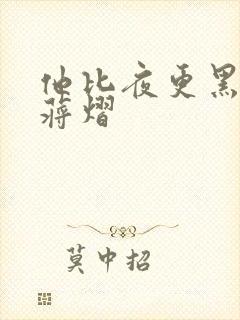 他比夜更黑
蒋熠
莫中招